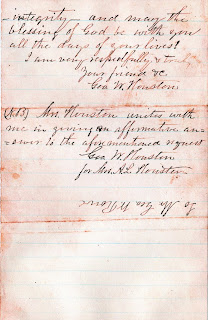 integrity - and may the
blessing of God be with you
all the days of your lives!
I am very respectfully & truly
Your friend &c.
Geo W. Houston
[N.B.] Mrs. Houston unites with
me in giving an affirmative an-
swer to the aforementioned request
Geo W. Houston
for Mrs. A. L. Houston
To Mr Geo W